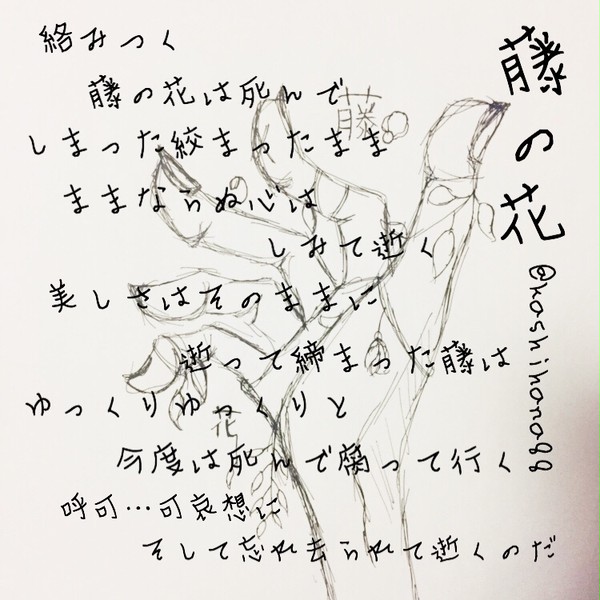 藤の花
@kashihara99
絡みつく
藤の花は死んで
しまった絞まったまま
ままならぬ心は
しみて逝く
美しさはそのままに
逝って締まった藤は
ゆっくりゆっくりと
今度は死んで腐って行く
呼可…可哀想に
そして忘れ去られて逝くのだ
藤
花